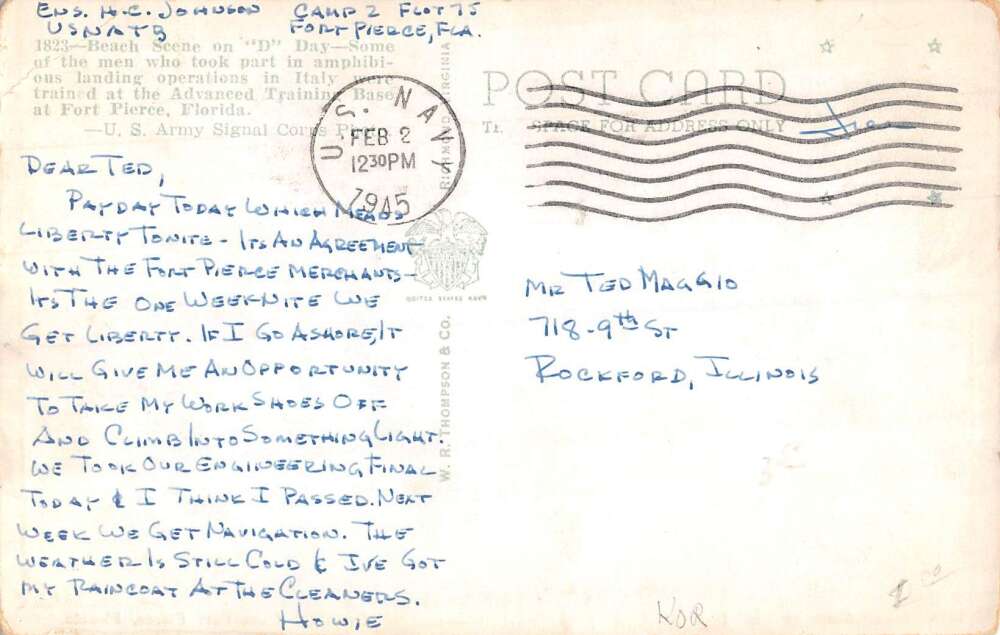 ENS. H.C. JOHNSON CAMP 2 FLOT 75
USNATB FORT PIERCE, FLA.
1823—Beach Scene on "D" Day—Some
of the men who took part in amphibi-
ous landing operations in Italy were
trained at the Advanced Training Base
at Fort Pierce, Florida.
—U. S. Army Signal Corps P
POST CARD
SPACE FOR ADDRESS ONLY
Free
U.S. NAVY
FEB 2
12 30 PM
1945
DEAR TED,
PAYDAY TODAY WHICH MEANS
LIBERTY TONITE - ITS AN AGREEMENT
WITH THE FORT PIERCE MERCHANTS -
ITS THE ONE WEEKNITE WE
GET LIBERTY. IF I GO ASHORE, IT
WILL GIVE ME AN OPPORTUNITY
TO TAKE MY WORK SHOES OFF
AND CLIMB INTO SOMETHING LIGHT.
WE TOOK OUR ENGINEERING FINAL
TODAY & I THINK I PASSED. NEXT
WEEK WE GET NAVIGATION. THE
WEATHER IS STILL COLD & I'VE GOT
MY RAINCOAT AT THE CLEANERS.
HOWIE
UNITED STATES NAVY
W. R. THOMPSON & CO.
RICHMOND, VIRGINIA
MR TED MAGGIO
718-9th ST
ROCKFORD, ILLINOIS